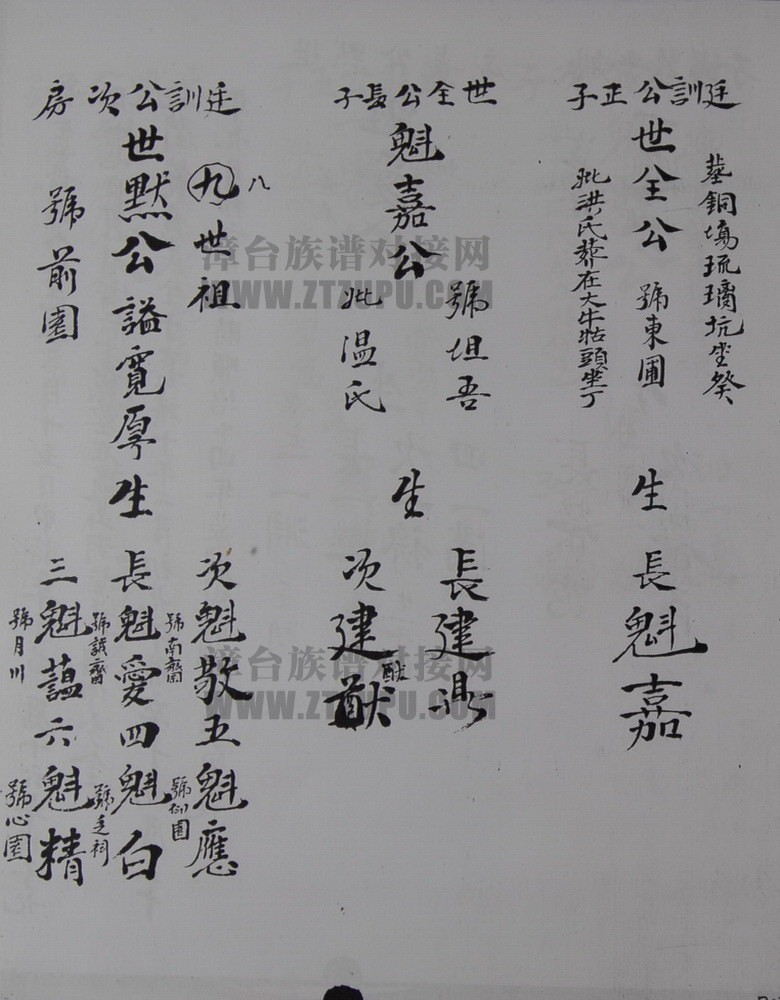 廷訓公正子
世全公 號東圃
墓銅塲琉璃坑坐癸
妣洪氏葬在大牛牯頭坐丁
生
長魁嘉
世全公長子
魁嘉公
號坦吾
妣溫氏
生
長建
次建猷
猷
廷訓公次房
八
九世祖
世默公諡寬厚生
號前園
次魁敬五魁應
號南
號仰圃
長魁愛四魁白
號誠齋
號 祠
三魁藴六魁精
號月川
號心園
漳台族谱对接网
WWW.ZTZUPU.COM
漳台族谱对接网
WWW.ZTZUPU.COM